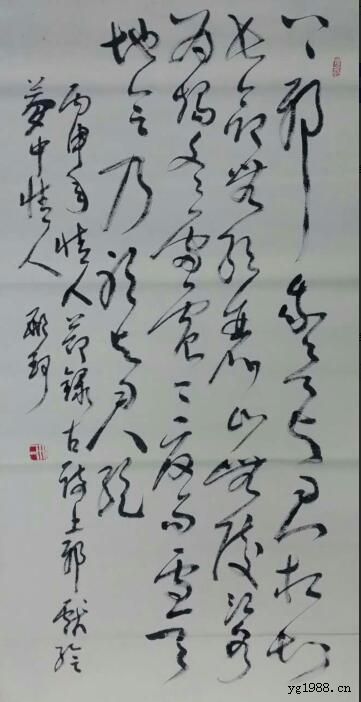 上邪我欲与君相知
长命無絶衰山無陵江水
为竭冬雷震震夏雨雪天
地合乃敢与君绝
丙申年情人节録古诗上邪献给
夢中情人
yg1988.cn